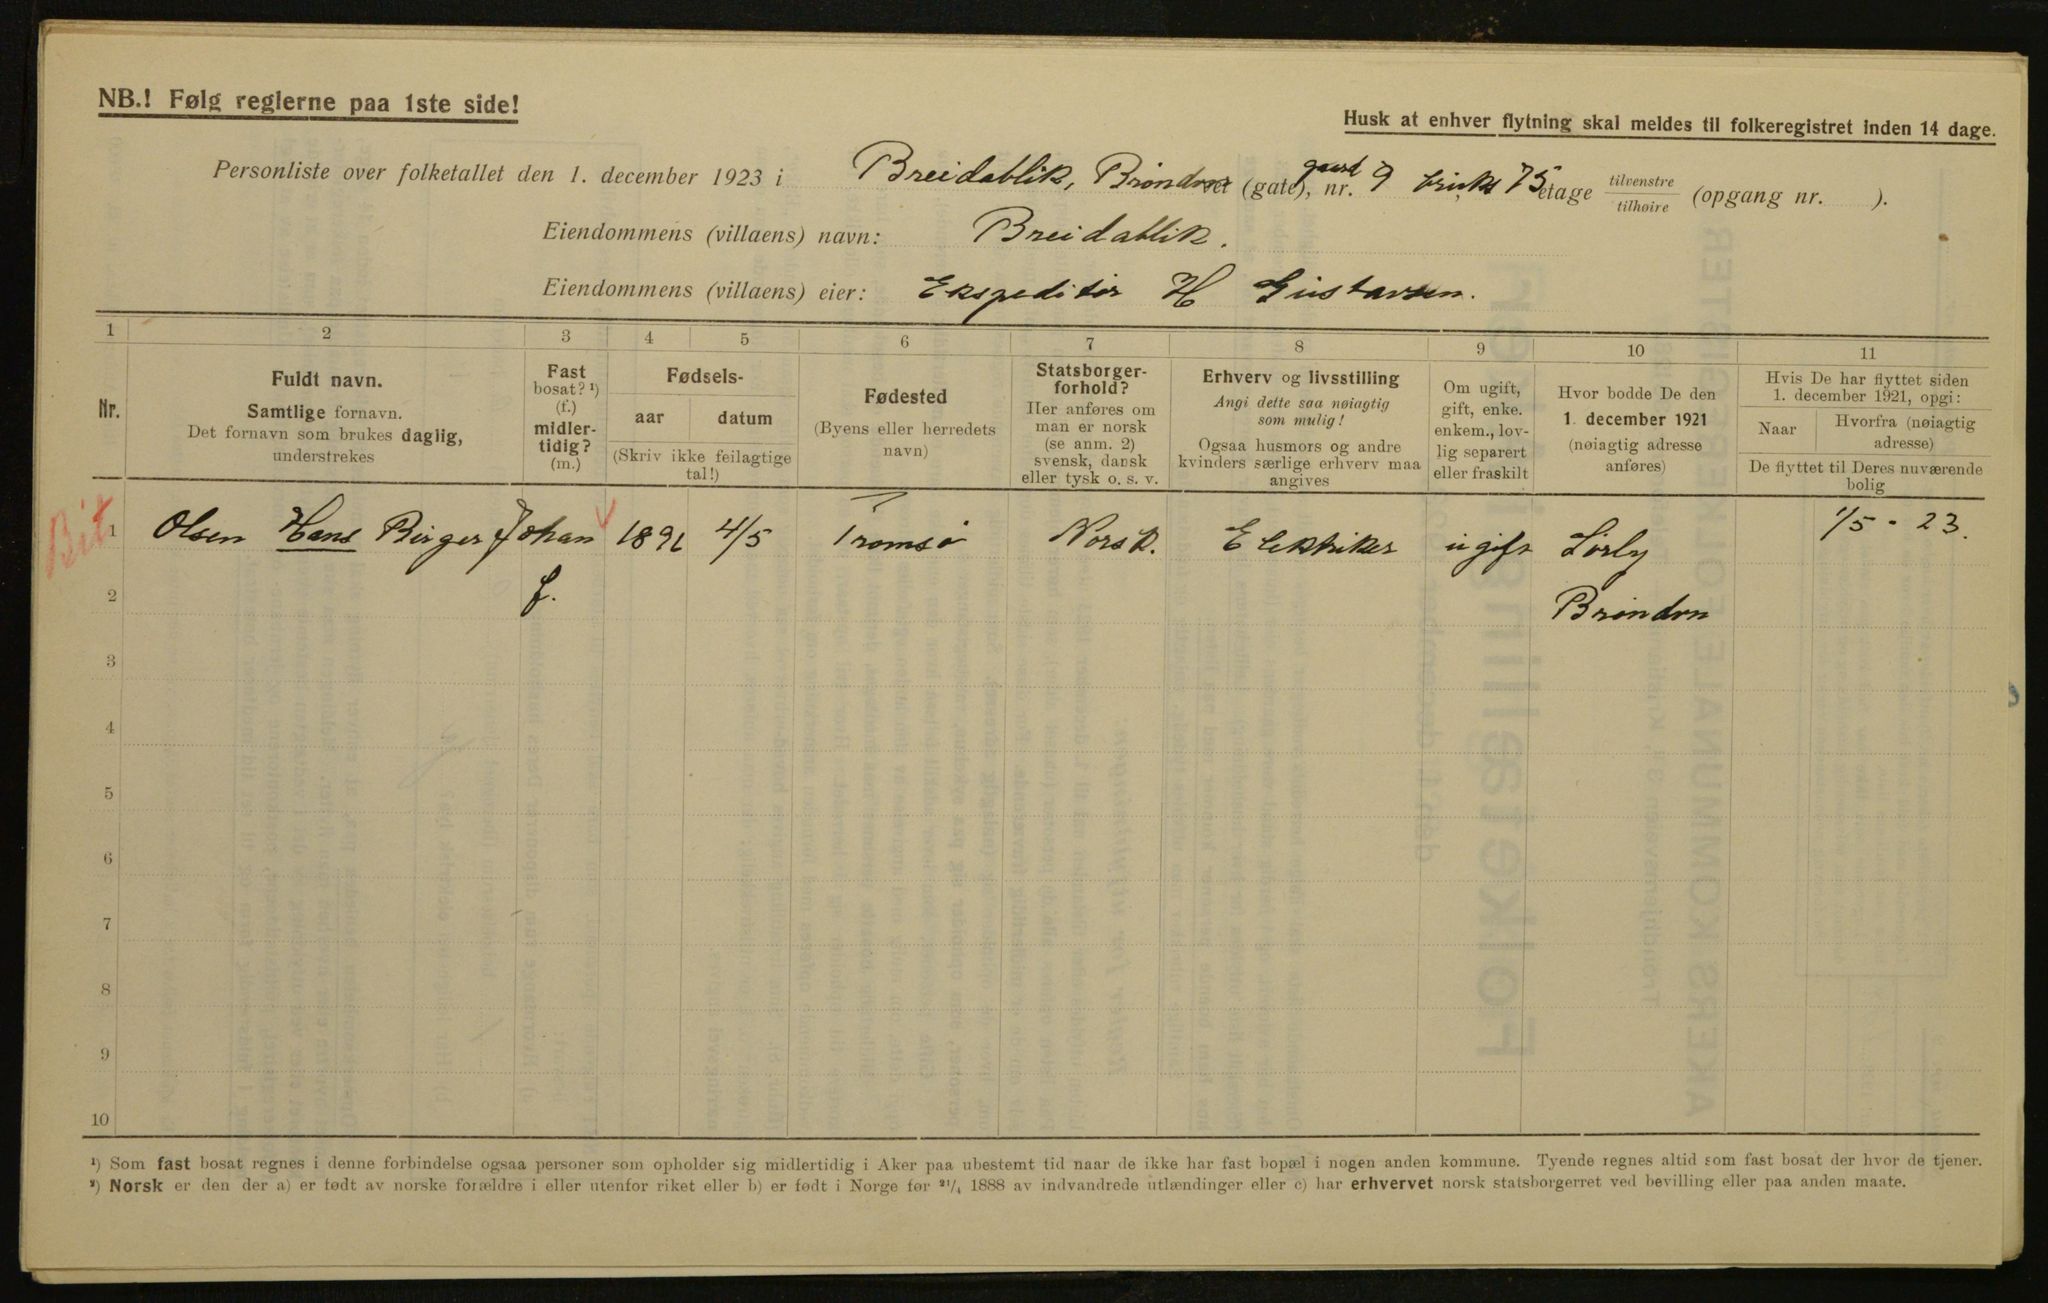 NB.! Følg reglerne paa 1ste side!
Husk at enhver flytning skal meldes til folkeregistret inden 14 dage.
Personliste over folketallet den 1. december 1923 i Breidablik, Brøndvei (gate), gaard nr. 9 bruks 75 etage tilvenstre tilhøire (opgang nr. ).
Eiendommens (villaens) navn: Breidablik.
Eiendommens (villaens) eier: Ekspeditør H Gustavsen.
1 2 3 4 5 6 7 8 9 10 11
Nr.
Fuldt navn.
Samtlige fornavn.
Det fornavn som brukes daglig,
understrekes
Fast
bosat? ¹)
(f.)
midler-
tidig?
(m.)
Fødsels-
aar datum
(Skriv ikke feilagtige
tal!)
Fødested
(Byens eller herredets
navn)
Statsborger-
forhold?
Her anføres om
man er norsk
(se anm. 2)
svensk, dansk
eller tysk o. s. v.
Erhverv og livsstilling
Angi dette saa nøiagtig
som mulig!
Ogsaa husmors og andre
kvinders særlige erhverv maa
angives
Om ugift,
gift, enke.
enkem., lov-
lig separert
eller fraskilt
Hvor bodde De den
1. december 1921
(nøiagtig adresse
anføres)
Hvis De har flyttet siden
1. december 1921, opgi:
Naar Hvorfra (nøiagtig
adresse)
De flyttet til Deres nuværende
bolig
1 Olsen Hans Birger Johan 1891 4/5 Tromsø Norsk. Elektriker ugift 1/5 - 23.
2 f.
3
4
5
6
7
8
9
10
¹) Som fast bosat regnes i denne forbindelse ogsaa personer som opholder sig midlertidig i Aker paa ubestemt tid naar de ikke har fast bopæl i nogen anden kommune. Tyende regnes altid som fast bosat der hvor de tjener.
²) Norsk er den der a) er født av norske forældre i eller utenfor riket eller b) er født i Norge før ²¹/₄ 1888 av indvandrede utlændinger eller c) har erhvervet norsk statsborgerret ved bevilling eller paa anden maate.